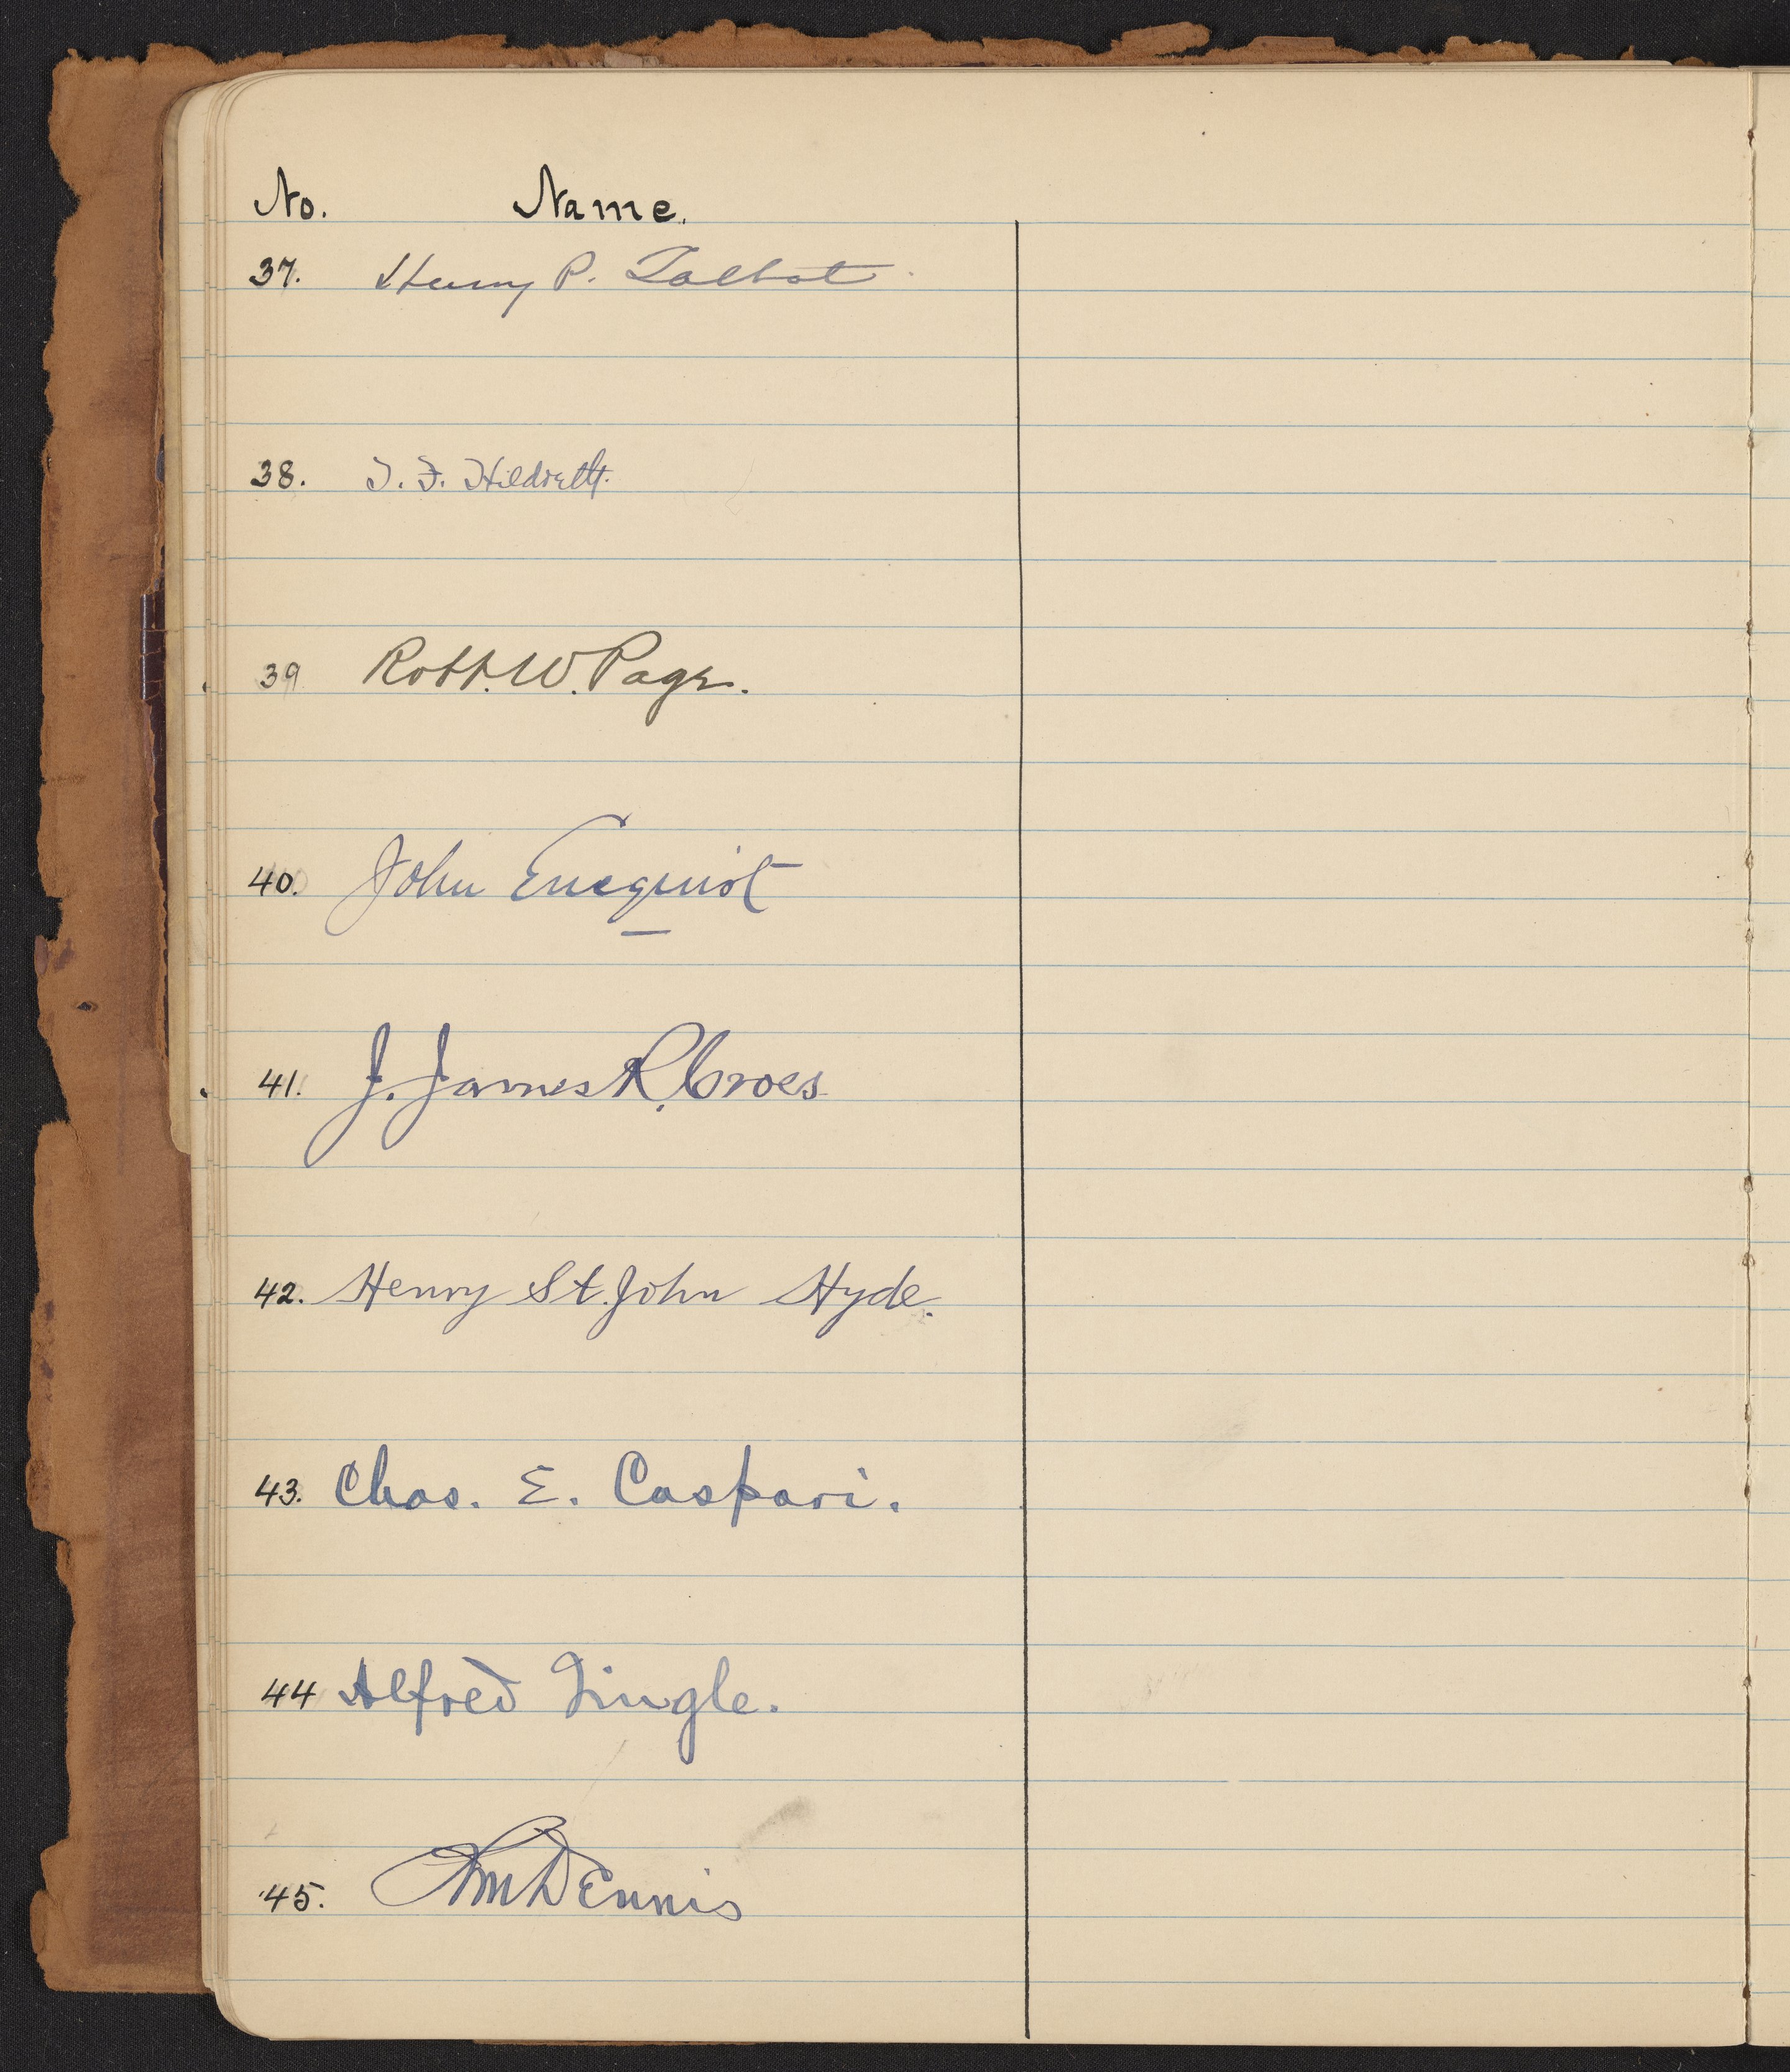 No. Name.
37. Henry P. Talbot
38. T. F. Hildreth.
39 Robt. W. Page.
40. John Enequist
41. J. James R. Croes
42. Henry St. John Hyde.
43. Chas. E. Caspari.
44 Alfred Tingle.
45. Dennis